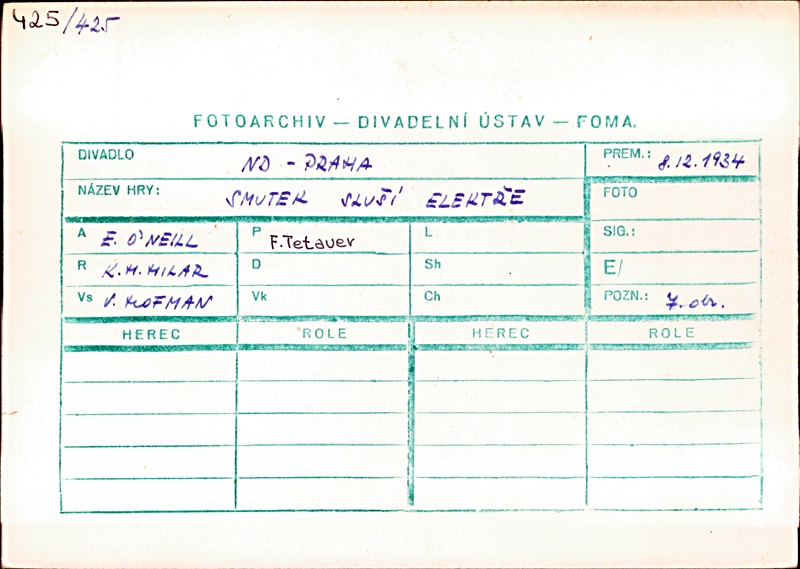 425/425
FOTOARCHIV — DIVADELNÍ ÚSTAV — FOMA.
DIVADLO ND - PRAHA PREM.: 8.12.1934
NÁZEV HRY: SMUTEK SLUŠÍ ELEKTŘE FOTO
A E. O'NEILL P F. Tetauer L SIG.:
R K.H.HILAR D Sh E/
Vs V. HOFMAN Vk Ch POZN.: 7. obr.
HEREC ROLE HEREC ROLE